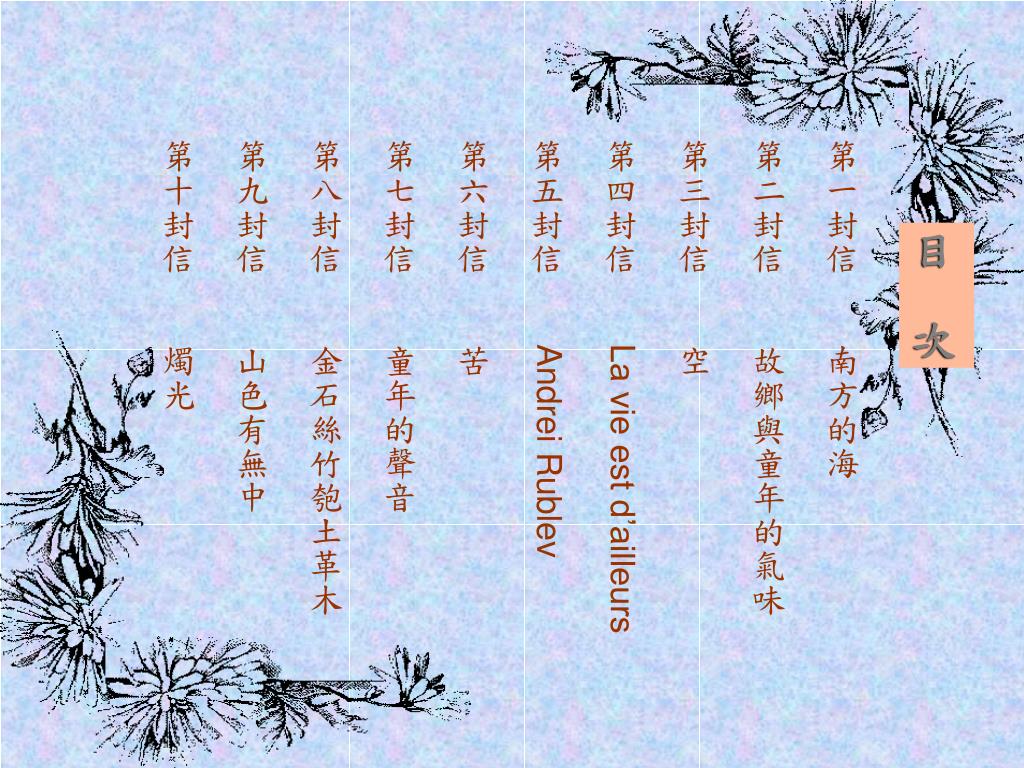 目次
第一封信 南方的海
第二封信 故鄉與童年的氣味
第三封信 空
第四封信 La vie est d’ailleurs
第五封信 Andrei Rublev
第六封信 苦
第七封信 童年的聲音
第八封信 金石絲竹匏土革木
第九封信 山色有無中
第十封信 燭光